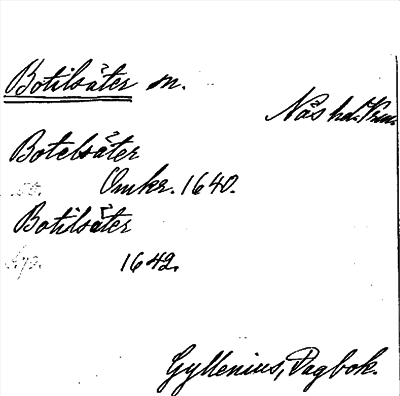 Botilsäter sn.
Näs hd. Vrml.
Botelsäter
Omkr. 1640.
Botilsäter
1642.
Gyllenius, Dagbok.